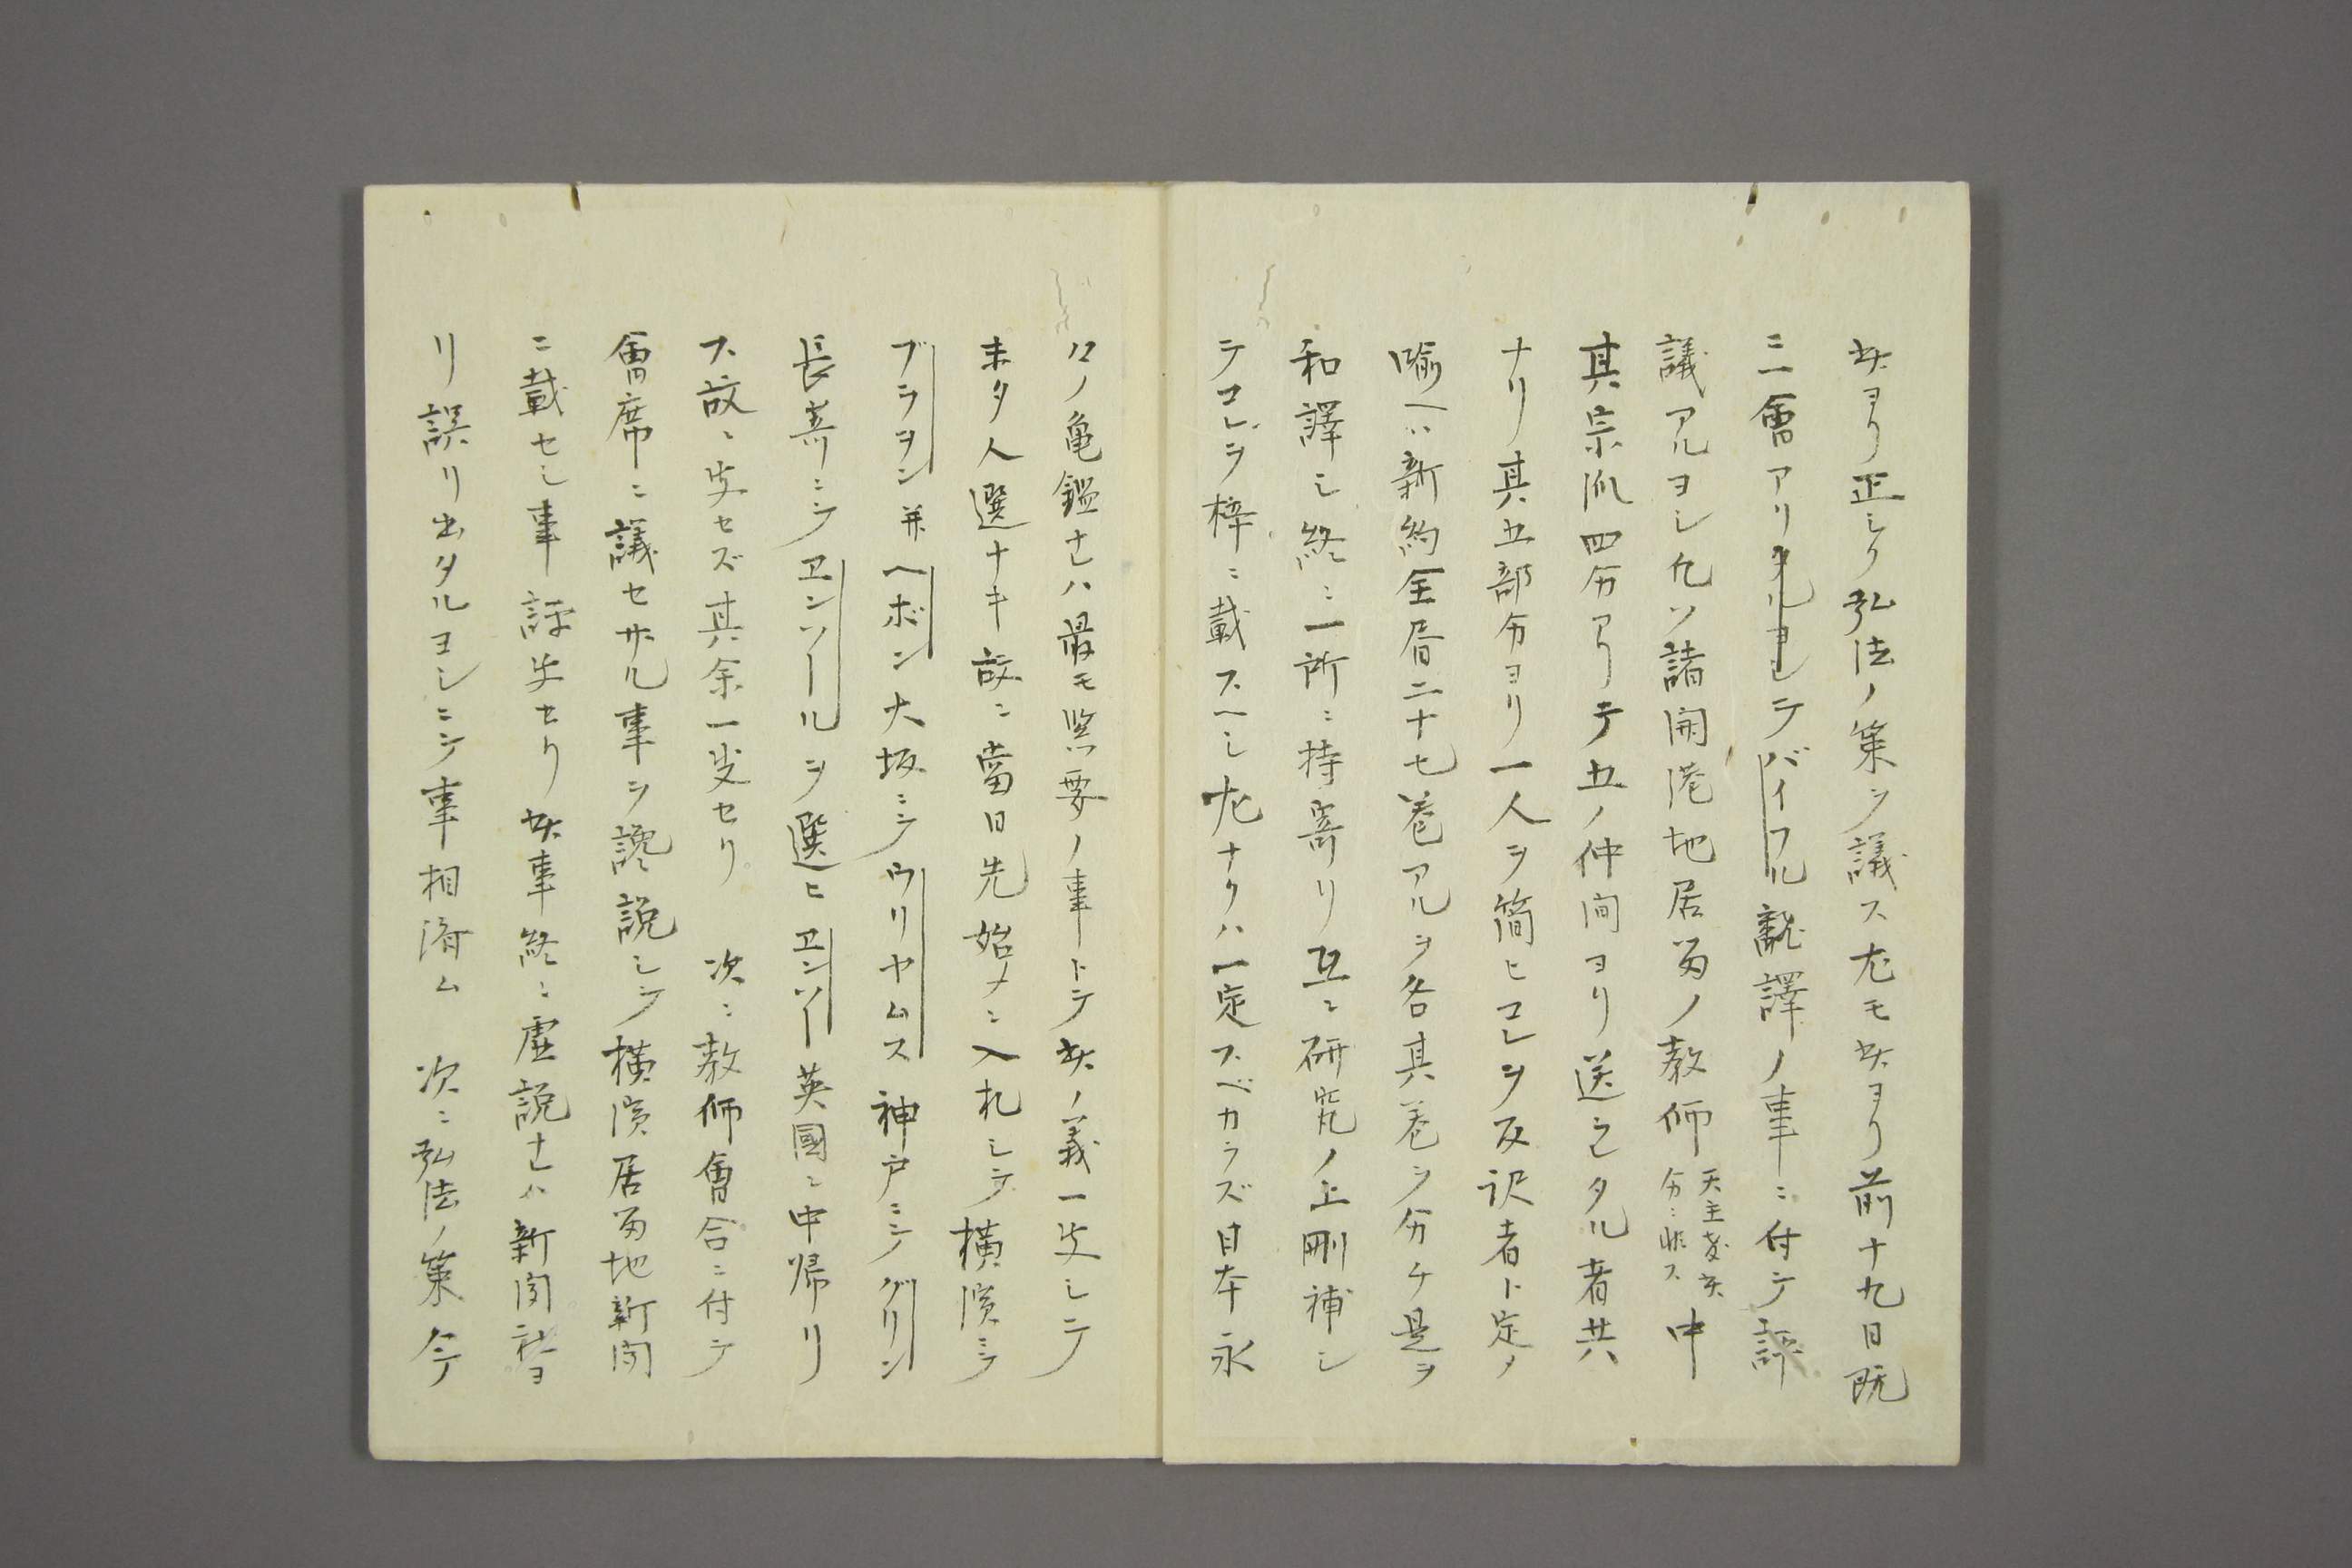 此ヨリ正シク弘法ノ策ヲ議ス尤モ此ヨリ前十九日既
ニ一會アリタルヨシテバイフル飜譯ノ事ニ付テ評
議アルヨシ凡ソ諸開港地居留ノ教師
天主教此
分ニ非ス
中
其宗派四分アリテ五ノ仲間ヨリ送ラレタル者共
ナリ其五部分ヨリ一人ヲ簡ヒコレヲ反訳者ト定メ
喩ヘハ新約全書二十七巻アルヲ各其巻ヲ分チ是ヲ
和譯シ終ニ一所ニ持寄リ互ニ研究ノ上刪補シ
テコレヲ梓ニ載スヘシ尤ナクハ一定スベカラズ日本永
久ノ亀鑑ナレハ最モ緊要ノ事トテ此ノ義一决シテ
未タ人選ナキ故ニ當日先始メニ入札シテ横濱ニテ
ブラヲン并ヘボン大坂ニテウリヤムス神戸ニテグリン
長崎ニテヱンソールヲ選ヒヱンソー英國ニ中帰リ
ス故ニ决セズ其余一决セリ 次ニ教師會合ニ付テ
會席ニ議セサル事ヲ讒説シテ横濱居留地新聞
ニ載セシ事評决セリ此事終ニ虚説ナレハ新聞社ヨ
リ誤リ出タルヨシニテ事相済ム 次ニ弘法ノ策今